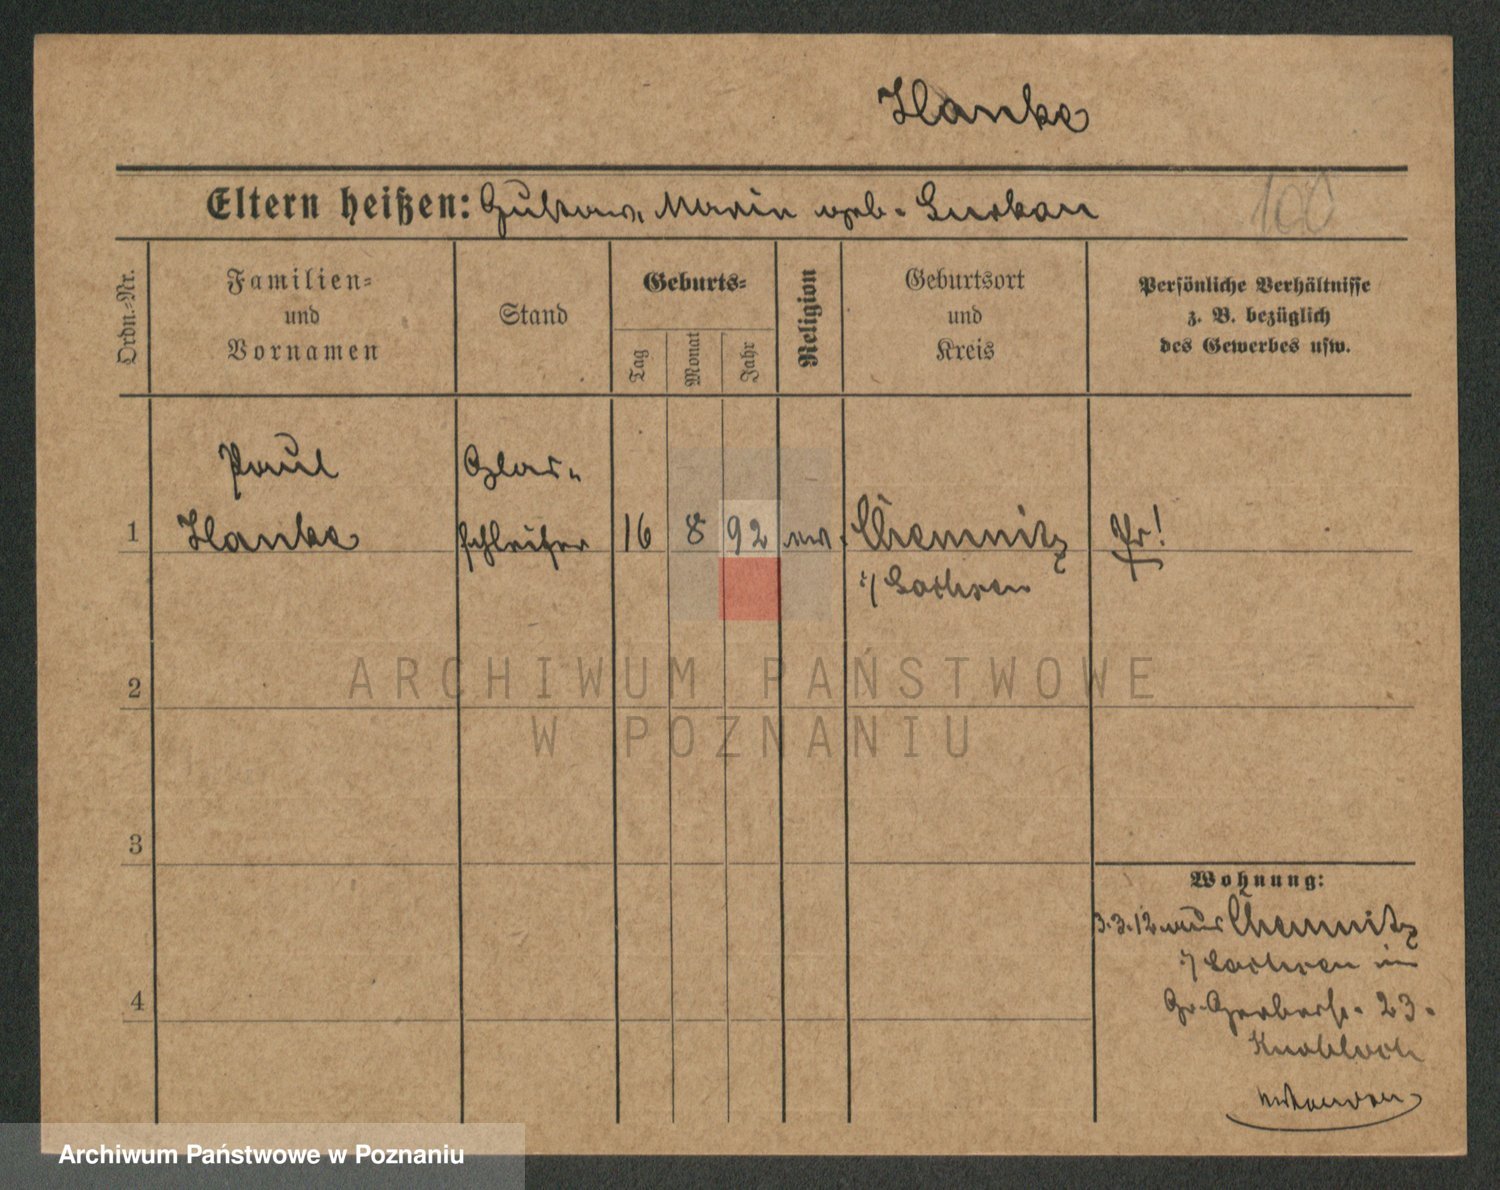 Hanke
Eltern heißen: Gustav, Marie geb.
100
Ordn.-Nr.
Familien-
und
Vornamen
Stand
Geburts-
Tag
Monat
Jahr
Religion
Geburtsort
und
Kreis
Persönliche Verhältnisse
z. B. bezüglich
des Gewerbes usw.
Paul Glas-
1 Hanke schleifer 16 8 92 ev. Chemnitz Pr!
i/ Sachsen
2
ARCHIWUM PAŃSTWOWE
W POZNANIU
3
Wohnung:
3.3.12 aus Chemnitz
i/ Sachsen in
4 Gr. Gerberstr. 23.
Knobloch
Archiwum Państwowe w Poznaniu